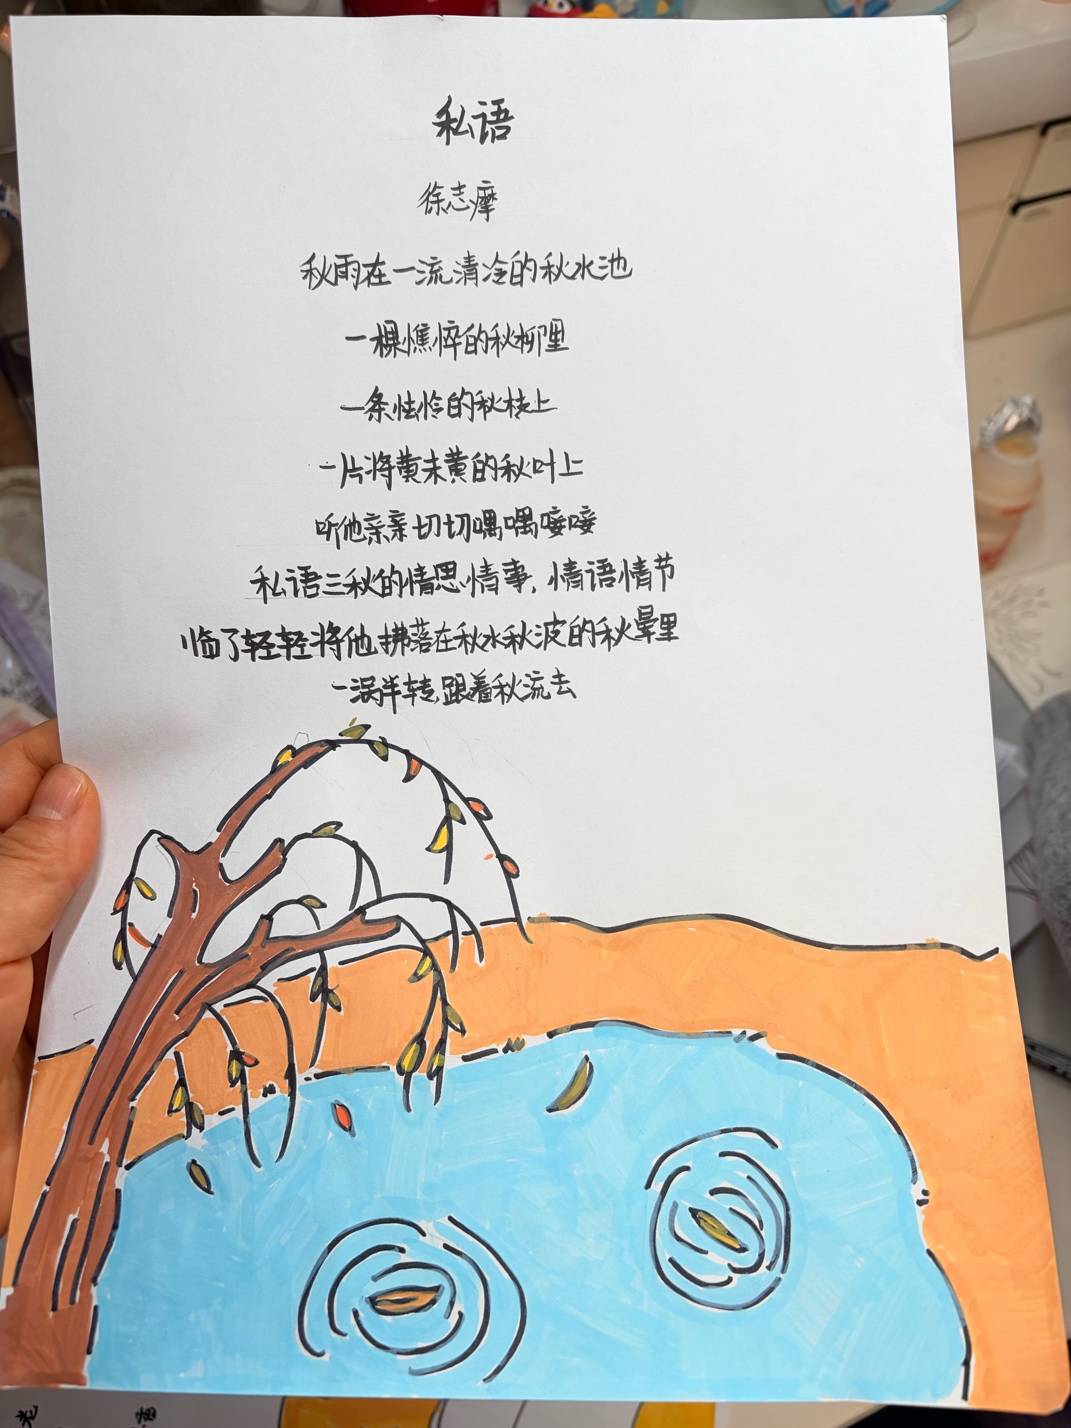 私语
徐志摩
秋雨在一流清冷的秋水池
一棵憔悴的秋柳里
一条怯怜的秋枝上
一片将黄未黄的秋叶上
听他亲亲切切喁喁唼唼
私语三秋的情思情事,情语情节
临了轻轻将他拂落在秋水秋波的秋晕里
一涡半转,跟着秋流去
老